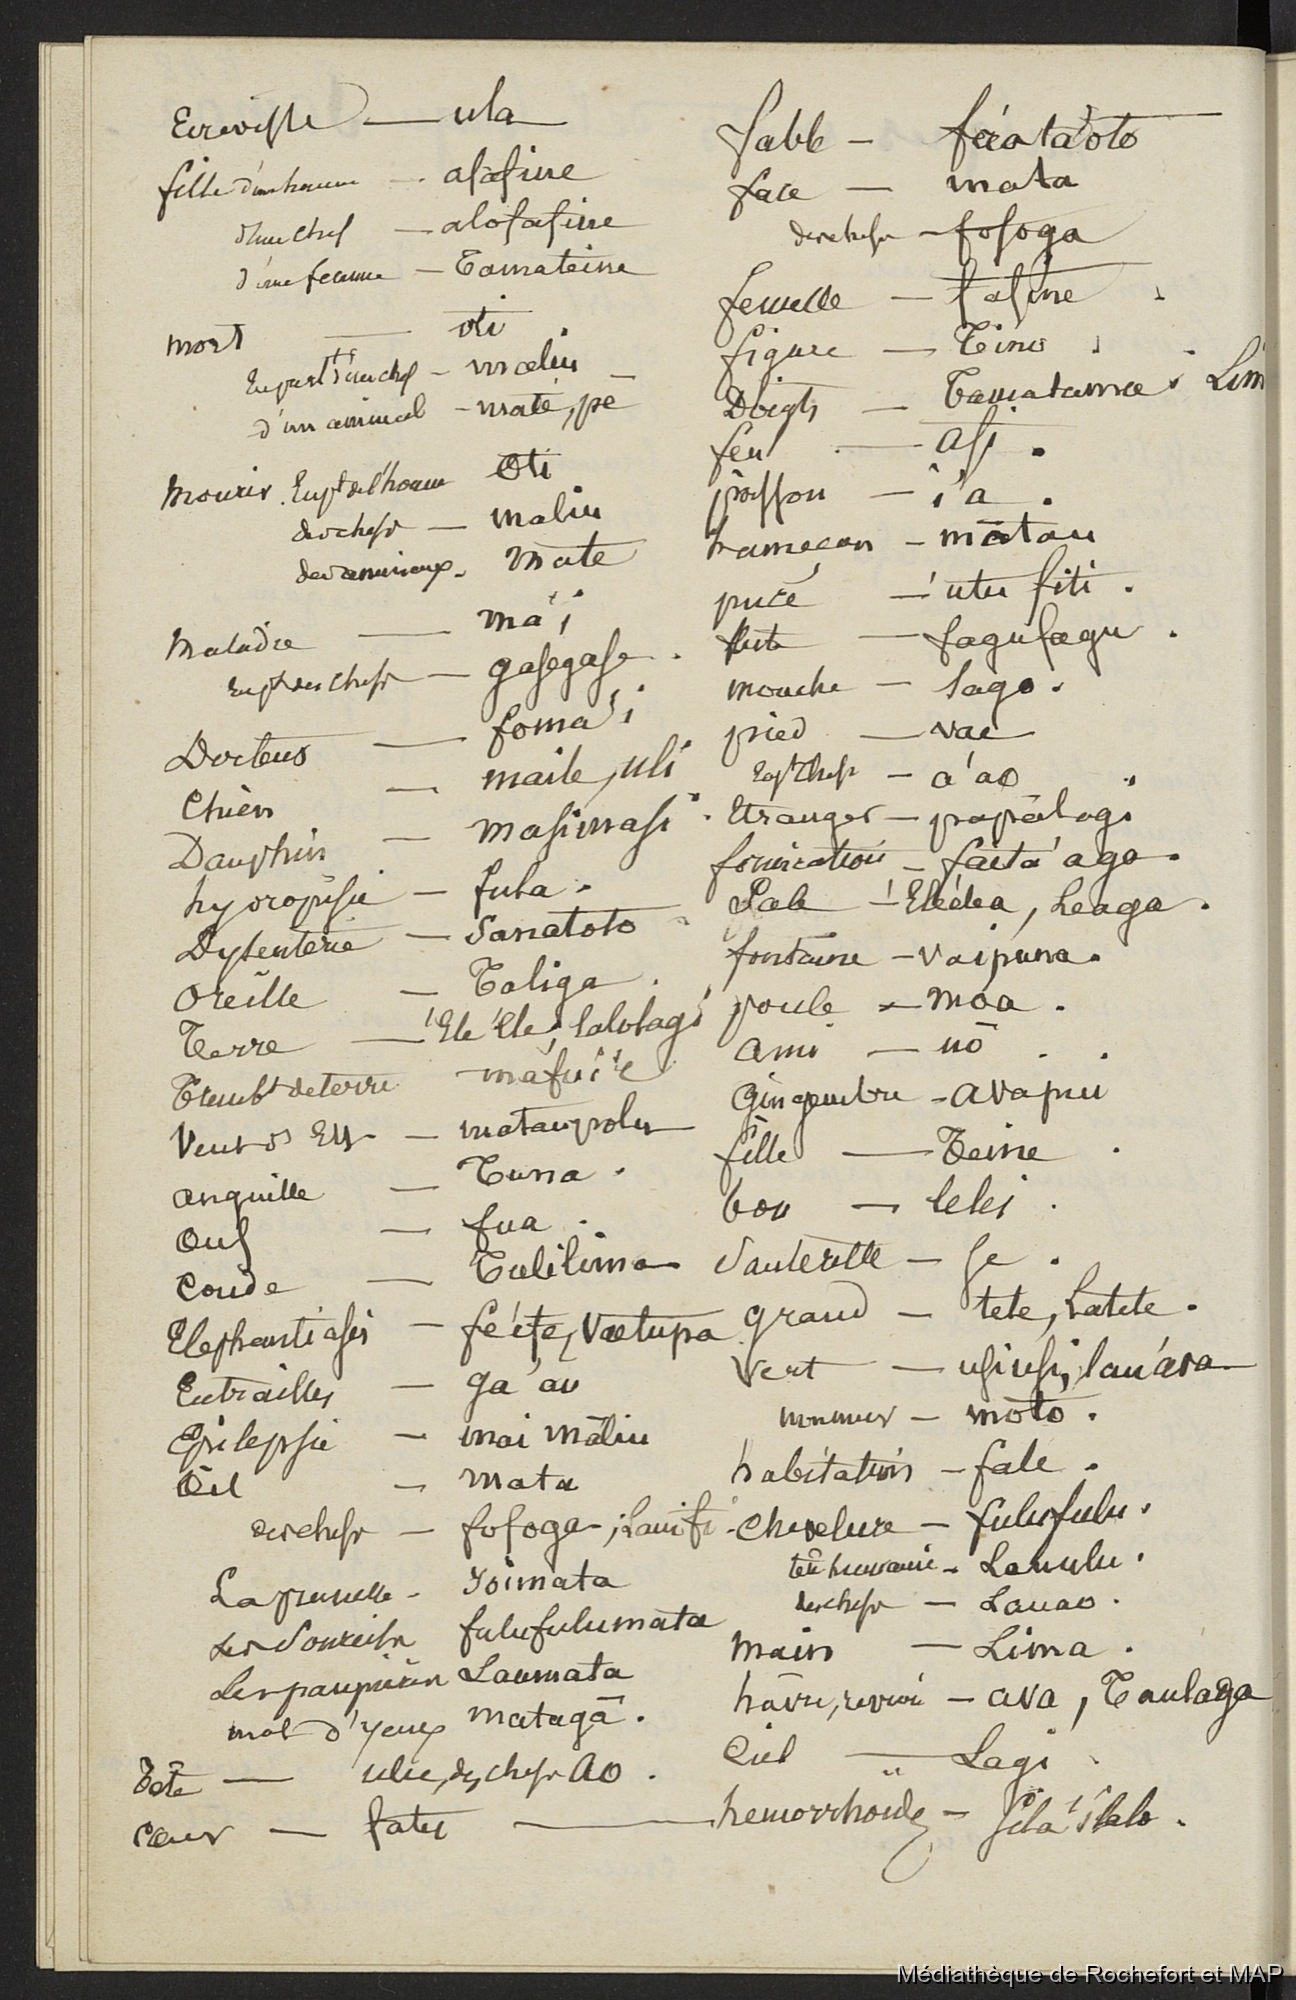 Ecrevisse — ula
fille d'un homme — afafine
d'un chef — alofafine
d'une femme — Tamateine
mort — oti
En part. d'un chef — maliu
d'un animal — mate, pē
Mourir En pt de l'homme Oti
des chefs — maliu
des animaux - mate
Maladie — ma'i
en pt des chefs — gasegase.
Docteur — foma'i
Chien — maile, uli
Dauphin — masimasi
hydropisie — fula.
Dysenterie — Sanatoto
Oreille — Taliga.
Terre — 'Ele'ele, lalolagi
Trembt de terre — mafui'e
Vent d'Est — mataupolu
anguille — Tuna.
Oeuf — fua.
Coude — Tulilima
Elephantiasis — fe'efe, Vaetupa
Entrailles — ga'au
Epilepsie — mai māliu
Œil — mata
des chefs — fofoga, Laufi
La prunelle - Ioimata
Les Sourcils fulufulumata
Les paupières Laumata
mal d'yeux matagā.
Tête — ulu, des chefs ao.
Cœur — fatu
Sable —
face — mata
des chefs — fofoga
femelle — fafine
figure — Tino
Doigts — Tamatamae Lim
feu — afi.
poisson — i'a.
hameçon — mātau
puce — 'utu fiti.
flute — fagufagu.
mouche — lago.
pied — vae
En pt Chefs — a'ao
Etranger — papālagi
fornication — faita'aga.
Sale — 'Ele'elea, leaga.
fontaine — vaipuna.
poule — moa.
ami — uō.
Gingembre - avapui
fille — Teine.
bon — lelei.
Sauterelle — se.
grand — tele, Latele.
Vert — usiusi, lau'ava
— moto.
habitation — fale.
Chevelure — fulufulu.
tête humaine - Lauulu.
des chefs — Lauao.
Main — Lima.
hâvre, — ava, Taulaga
Ciel — Lagi
hemorrhoïdes — fila'ilalo.
Médiathèque de Rochefort et MAP